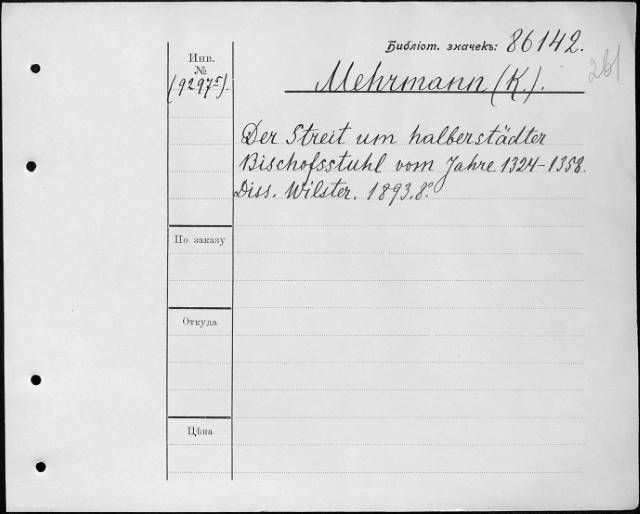 Библіот. значекъ: 86142.
261
Инв.
№
(9297⁵).
Mehrmann (K.).
Der Streit um halberstädter
Bischofsstuhl vom Jahre 1324-1358.
Diss. Wilster. 1893. 8°
По заказу
Откуда
Цѣна